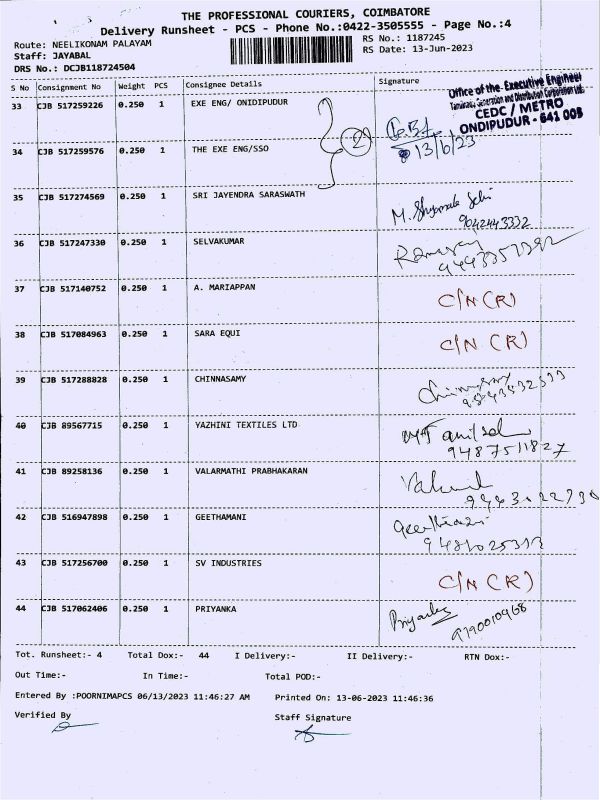 THE PROFESSIONAL COURIERS, COIMBATORE
Delivery Runsheet - PCS - Phone No.:0422-3505555 - Page No.:4
Route: NEELIKONAM PALAYAM
RS No.: 1187245
Staff: JAYABAL
RS Date: 13-Jun-2023
DRS No.: DCJB118724504
S No Consignment No Weight PCS Consignee Details Signature
Office of the Executive Engineer
Tamilnadu Generation and Distribution Corporation Ltd.
CEDC / METRO
ONDIPUDUR - 641 005
33 CJB 517259226 0.250 1 EXE ENG/ ONIDIPUDUR
2
13/6/23
34 CJB 517259576 0.250 1 THE EXE ENG/SSO
35 CJB 517274569 0.250 1 SRI JAYENDRA SARASWATH
9042443332
36 CJB 517247330 0.250 1 SELVAKUMAR
37 CJB 517140752 0.250 1 A. MARIAPPAN C/N (R)
38 CJB 517084963 0.250 1 SARA EQUI C/N (R)
39 CJB 517288828 0.250 1 CHINNASAMY
40 CJB 89567715 0.250 1 YAZHINI TEXTILES LTD
9487511827
41 CJB 89258136 0.250 1 VALARMATHI PRABHAKARAN
42 CJB 516947898 0.250 1 GEETHAMANI
43 CJB 517256700 0.250 1 SV INDUSTRIES C/N (R)
44 CJB 517062406 0.250 1 PRIYANKA
Tot. Runsheet:- 4 Total Dox:- 44 I Delivery:- II Delivery:- RTN Dox:-
Out Time:- In Time:- Total POD:-
Entered By :POORNIMAPCS 06/13/2023 11:46:27 AM Printed On: 13-06-2023 11:46:36
Verified By Staff Signature